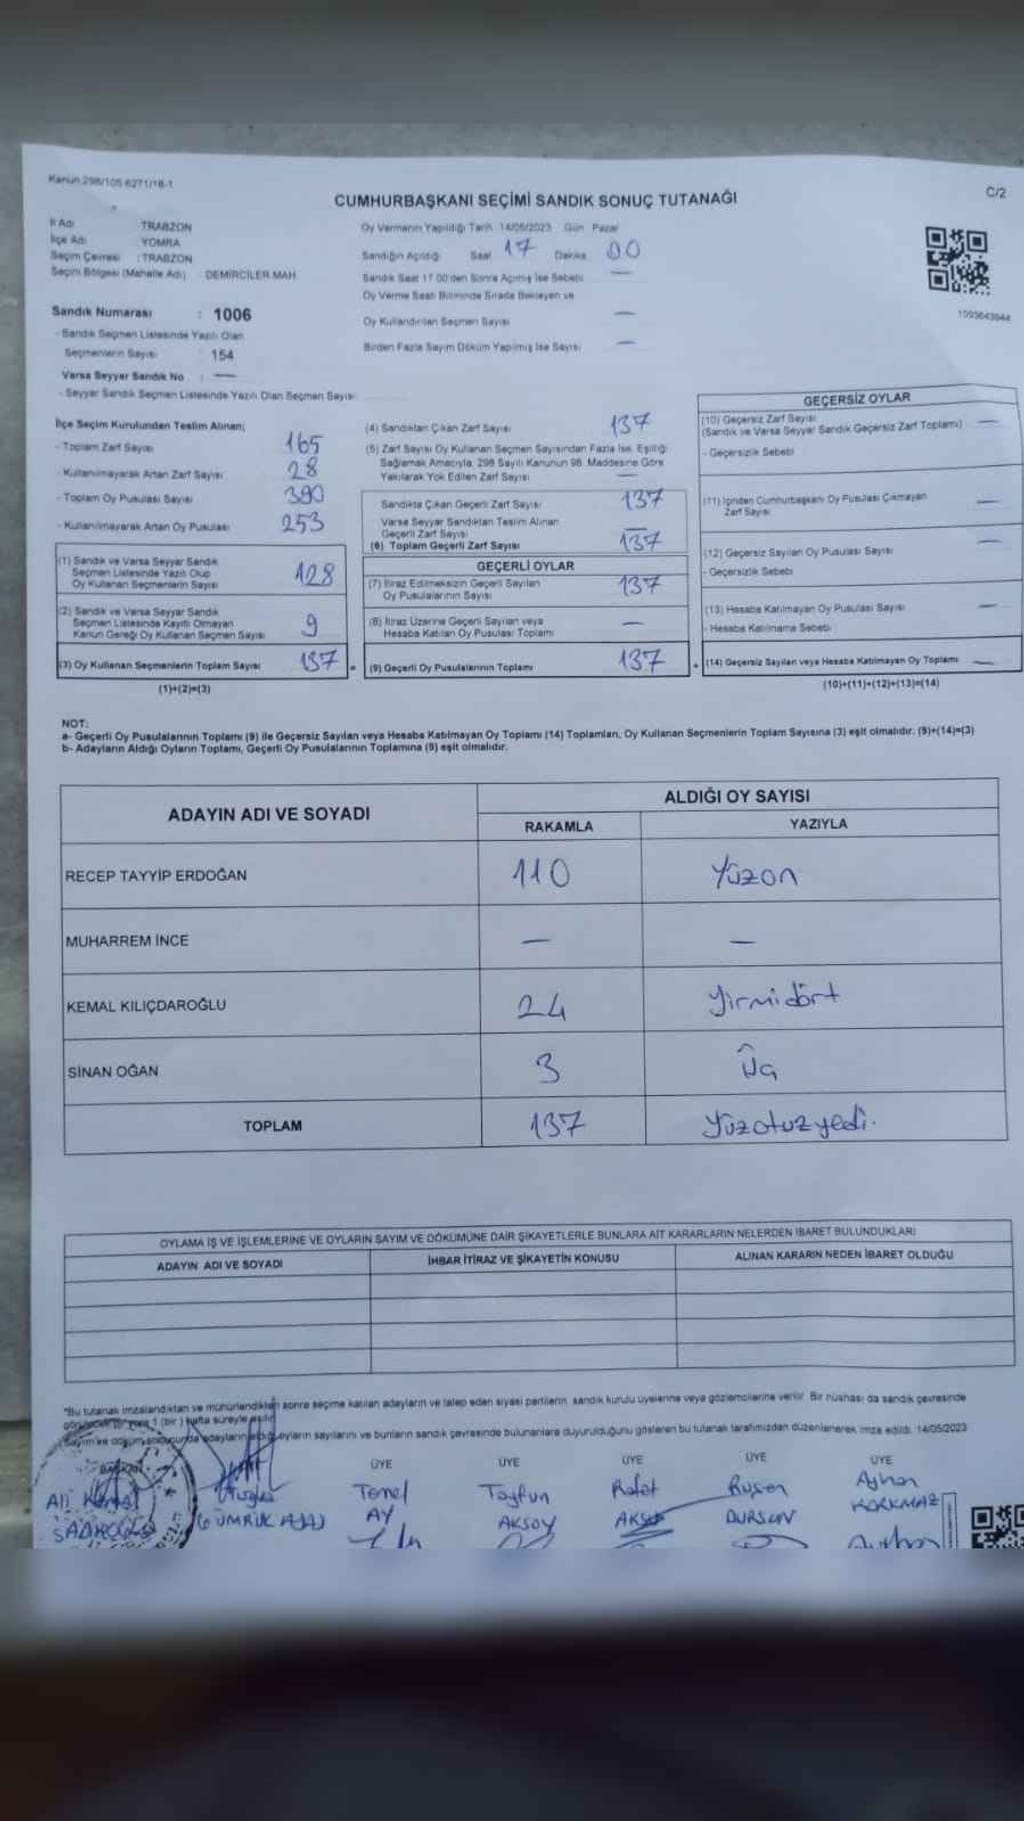 Kanun 298/105 6271/18-1
C/2
CUMHURBAŞKANI SEÇİMİ SANDIK SONUÇ TUTANAĞI
İl Adı TRABZON
İlçe Adı YOMRA
Seçim Çevresi : TRABZON
Seçim Bölgesi (Mahalle Adı) DEMİRCİLER MAH
Sandık Numarası : 1006
- Sandık Seçmen Listesinde Yazılı Olan
Seçmenlerin Sayısı 154
Varsa Seyyar Sandık No : —
- Seyyar Sandık Seçmen Listesinde Yazılı Olan Seçmen Sayısı
Oy Vermenin Yapıldığı Tarih 14/05/2023 Gün Pazar
Sandığın Açıldığı Saat 17 Dakika 00
Sandık Saat 17.00'den Sonra Açılmış İse Sebebi —
Oy Verme Saati Bitiminde Sırada Bekleyen ve
Oy Kullandırılan Seçmen Sayısı —
Birden Fazla Sayım Döküm Yapılmış İse Sayısı —
1093643944
İlçe Seçim Kurulundan Teslim Alınan;
- Toplam Zarf Sayısı 165
- Kullanılmayarak Artan Zarf Sayısı 28
- Toplam Oy Pusulası Sayısı 390
- Kullanılmayarak Artan Oy Pusulası 253
(1) Sandık ve Varsa Seyyar Sandık
Seçmen Listesinde Yazılı Olup
Oy Kullanan Seçmenlerin Sayısı 128
(2) Sandık ve Varsa Seyyar Sandık
Seçmen Listesinde Kayıtlı Olmayan
Kanun Gereği Oy Kullanan Seçmen Sayısı 9
(3) Oy Kullanan Seçmenlerin Toplam Sayısı 137
(1)+(2)=(3)
(4) Sandıktan Çıkan Zarf Sayısı 137
(5) Zarf Sayısı Oy Kullanan Seçmen Sayısından Fazla İse, Eşitliği
Sağlamak Amacıyla, 298 Sayılı Kanunun 98. Maddesine Göre
Yakılarak Yok Edilen Zarf Sayısı —
Sandıkta Çıkan Geçerli Zarf Sayısı 137
Varsa Seyyar Sandıktan Teslim Alınan
Geçerli Zarf Sayısı —
(6) Toplam Geçerli Zarf Sayısı 137
GEÇERLİ OYLAR
(7) İtiraz Edilmeksizin Geçerli Sayılan
Oy Pusulalarının Sayısı 137
(8) İtiraz Üzerine Geçerli Sayılan veya
Hesaba Katılan Oy Pusulası Toplamı —
(9) Geçerli Oy Pusulalarının Toplamı 137
GEÇERSİZ OYLAR
(10) Geçersiz Zarf Sayısı
(Sandık ve Varsa Seyyar Sandık Geçersiz Zarf Toplamı) —
- Geçersizlik Sebebi
(11) İçinden Cumhurbaşkanı Oy Pusulası Çıkmayan
Zarf Sayısı —
(12) Geçersiz Sayılan Oy Pusulası Sayısı —
- Geçersizlik Sebebi
(13) Hesaba Katılmayan Oy Pusulası Sayısı —
- Hesaba Katılmama Sebebi
(14) Geçersiz Sayılan veya Hesaba Katılmayan Oy Toplamı —
(10)+(11)+(12)+(13)=(14)
NOT:
a- Geçerli Oy Pusulalarının Toplamı (9) ile Geçersiz Sayılan veya Hesaba Katılmayan Oy Toplamı (14) Toplamları, Oy Kullanan Seçmenlerin Toplam Sayısına (3) eşit olmalıdır. (9)+(14)=(3)
b- Adayların Aldığı Oyların Toplamı, Geçerli Oy Pusulalarının Toplamına (9) eşit olmalıdır.
ADAYIN ADI VE SOYADI
ALDIĞI OY SAYISI
RAKAMLA YAZIYLA
RECEP TAYYİP ERDOĞAN 110 Yüzon
MUHARREM İNCE — —
KEMAL KILIÇDAROĞLU 24 Yirmidört
SİNAN OĞAN 3 Üç
TOPLAM 137 Yüzotuzyedi.
OYLAMA İŞ VE İŞLEMLERİNE VE OYLARIN SAYIM VE DÖKÜMÜNE DAİR ŞİKAYETLERLE BUNLARA AİT KARARLARIN NELERDEN İBARET BULUNDUKLARI
ADAYIN ADI VE SOYADI İHBAR İTİRAZ VE ŞİKAYETİN KONUSU ALINAN KARARIN NEDEN İBARET OLDUĞU
*Bu tutanak imzalandıktan ve mühürlendikten sonra seçime katılan adayların ve talep eden siyasi partilerin sandık kurulu üyelerine veya gözlemcilerine verilir. Bir nüshası da sandık çevresinde
1 (bir) hafta süreyle asılır
Sayım ve döküm sonucunda adayların aldığı oyların sayılarını ve bunların sandık çevresinde bulunanlara duyurulduğunu gösteren bu tutanak tarafımızdan düzenlenerek imza edildi. 14/05/2023
BAŞKAN ÜYE ÜYE ÜYE ÜYE ÜYE
Ali Kemal Temel Tayfun Rafet Ruşen Ayhan
AY AKSOY AKSU DURSUN KORKMAZ